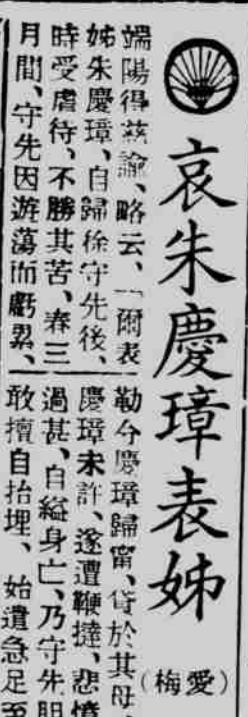 哀朱慶璋表姊
(梅愛)
端陽得慈諭、略云、「爾表
姊朱慶璋、自歸徐守先後、
時受虐待、不勝其苦、春三
月間、守先因游蕩而虧累、
勒令慶璋歸甯、貸於其母、
慶璋未許、遂遭鞭撻、悲憤
過甚、自縊身亡、乃守先胆
敢擅自抬埋、始遣急足至